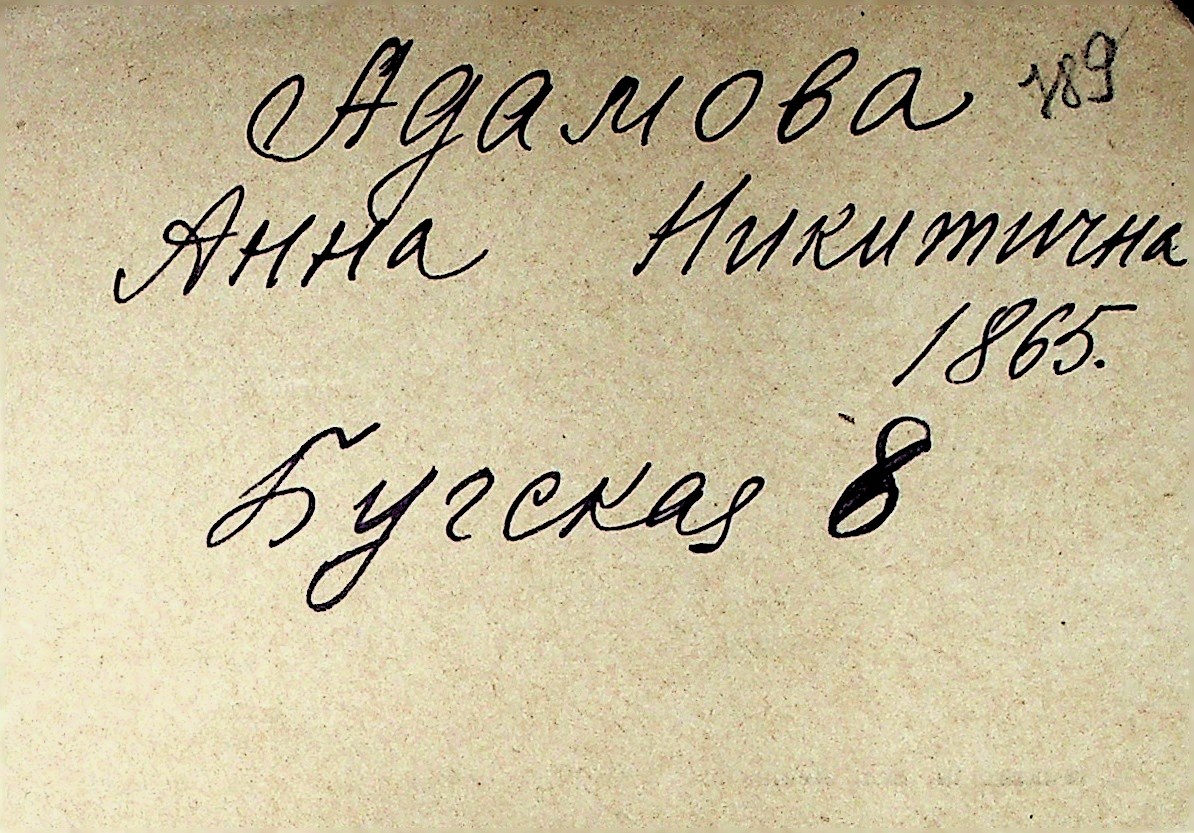 Адамова 189
Анна Никитична
1865.
Бугская 8